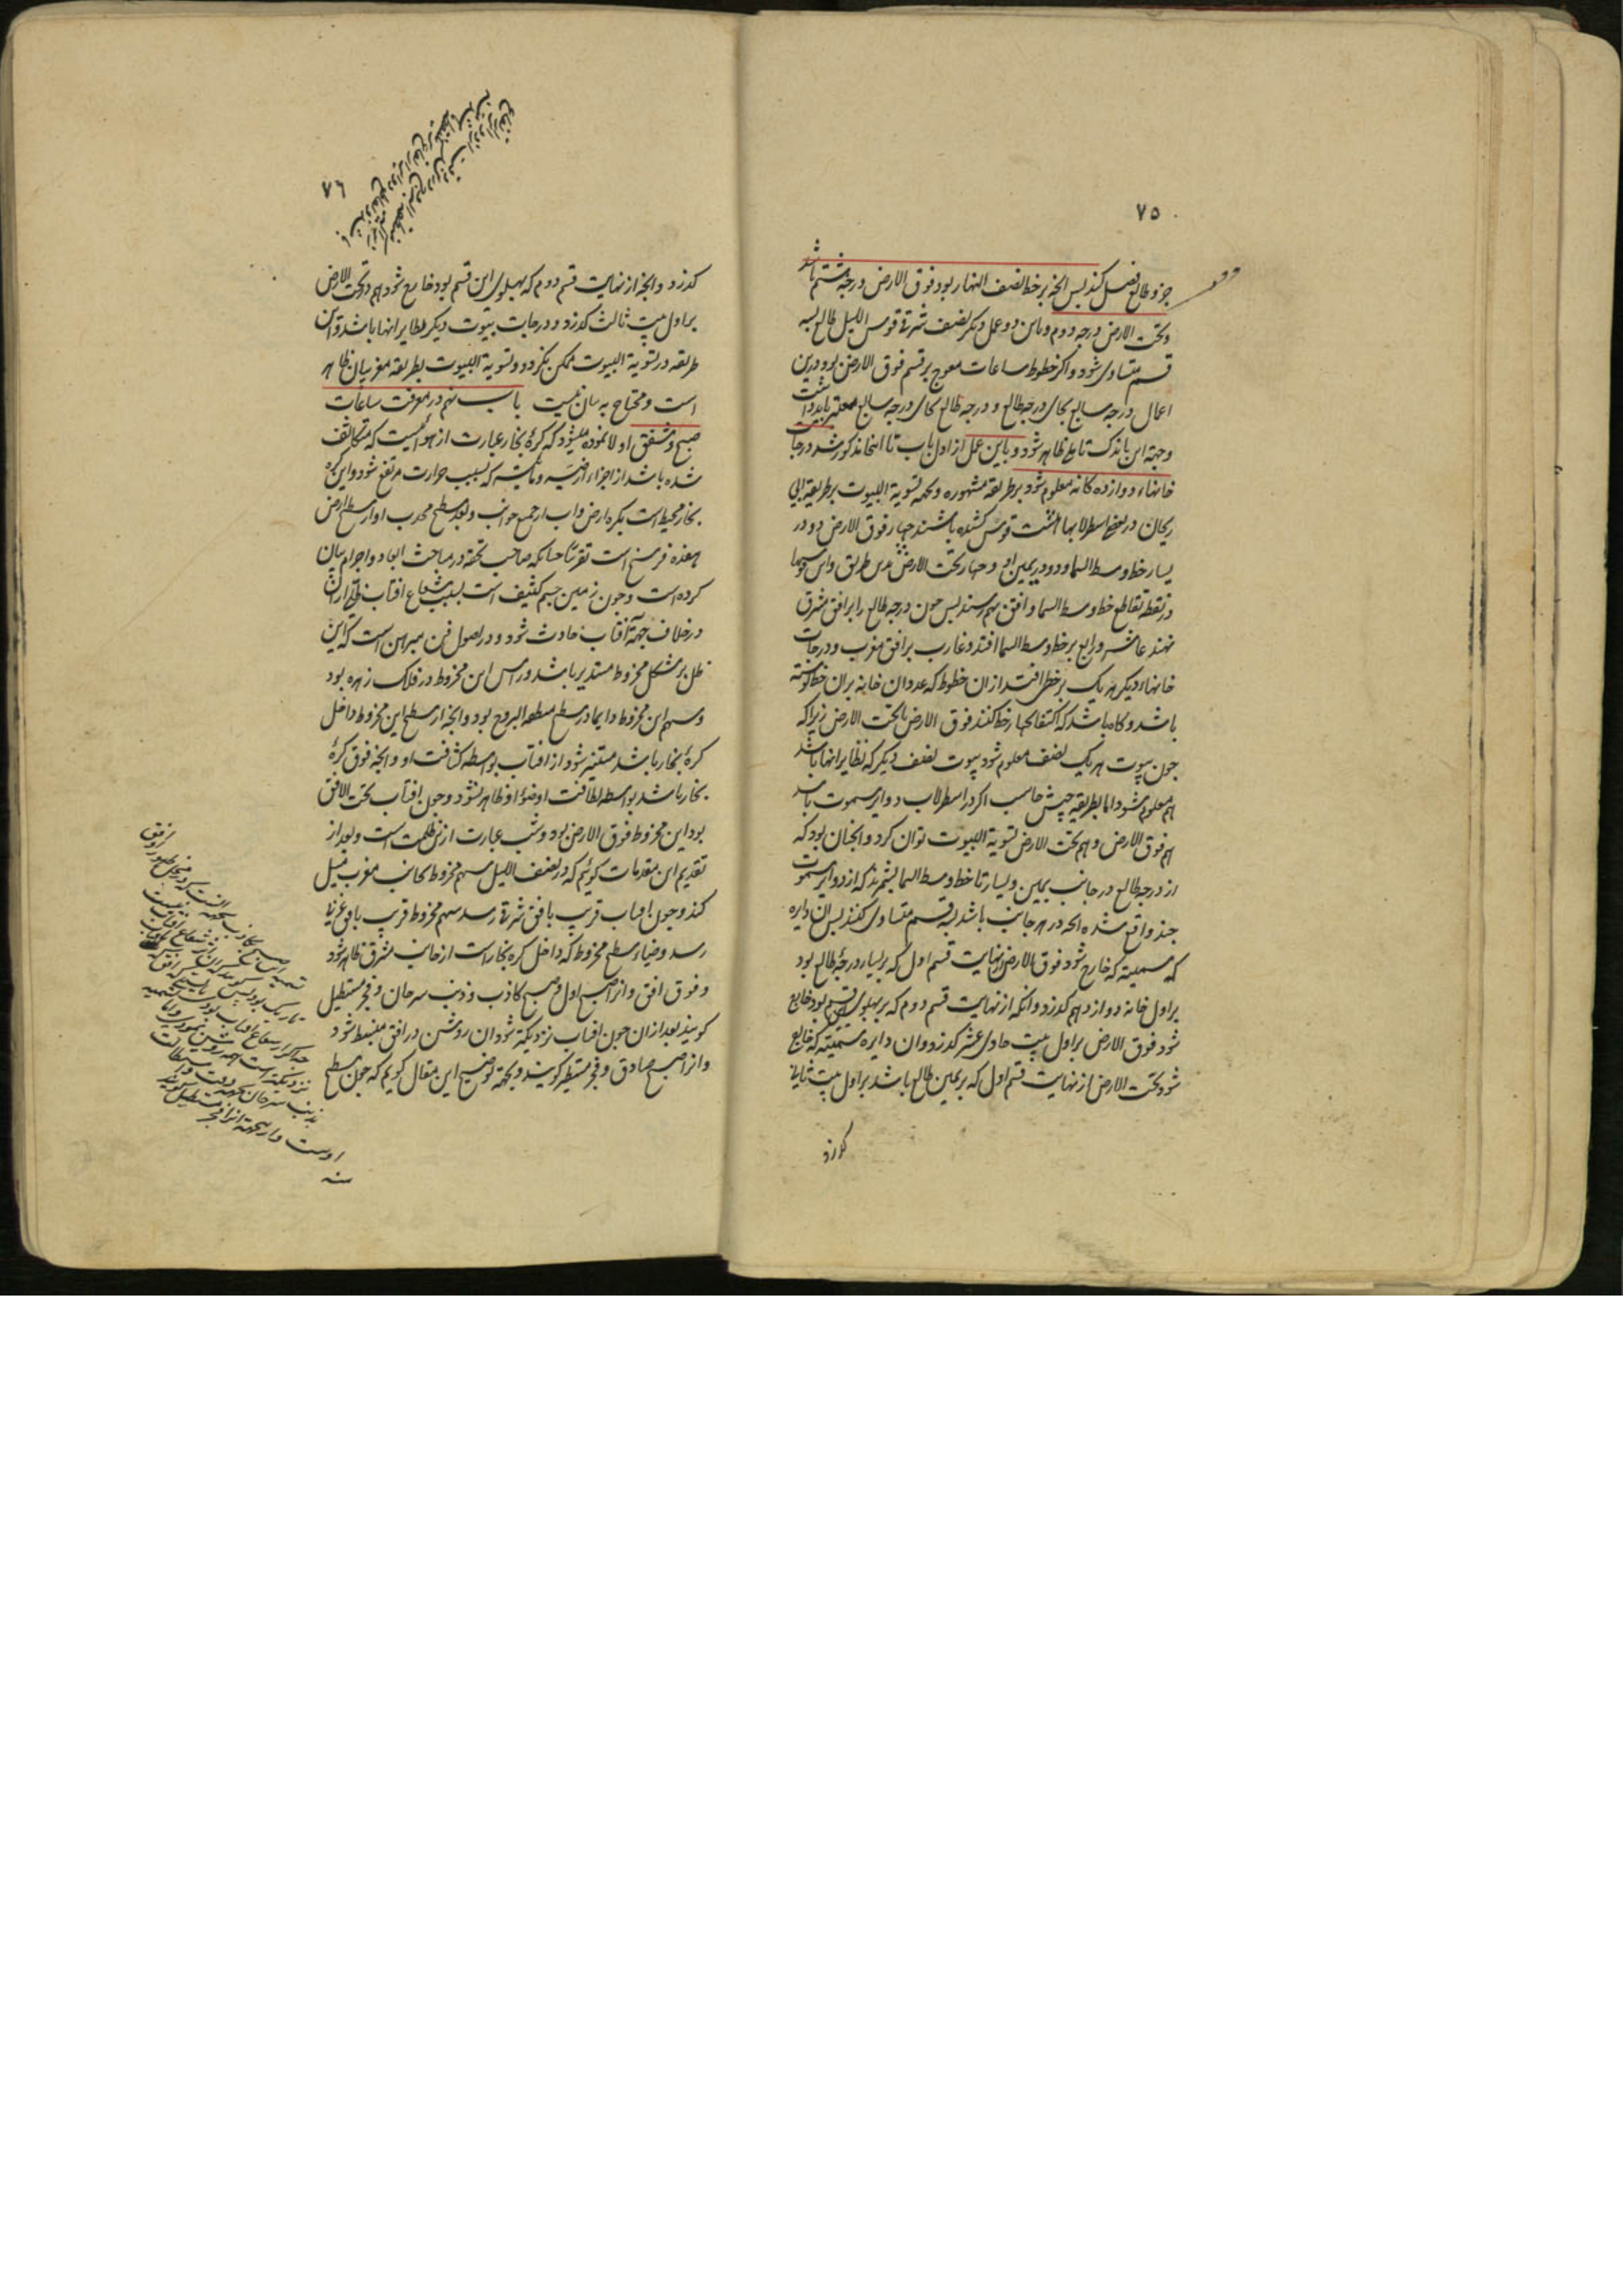 ۷۵
جزو طالع فصل کند پس انچه بر خط نصف النهار بود فوق الارض درجه هشتم باشد
و تحت الارض درجه دوم و باین دو عمل دیکر نصف شرقی قوس اللیل طالع بسه
قسم متساوی شود و اکر خطوط ساعات معوج بر قسم فوق الارض بود درین
اعمال درجه سابع بجای درجه طالع و درجه طالع بجای درجه سابع معتبر باید داشت
و جهة این باندک تامل ظاهر شود و باین عمل از اول باب تا اینجا مذکور شد درجات
خانهاء دوازده کانه معلوم شود بر طریقه مشهوره و بجهه تسویة البیوت بر طریقه ابی
ریحان در بعضی اسطرلابها هشت قوس کشیده باشند چهار فوق الارض دو در
یسار خط وسط السما و دو در یمین او و چهار تحت الارض بدین طریق و این قوسها
در نقطه تقاطع خط وسط السما و افق بهم رسند پس چون درجه طالع را بر افق مشرق
نهند عاشر و رابع بر خط وسط السما افتد و غارب بر افق مغرب و درجات
خانهاء دیکر هر یک بر خطی افتد از ان خطوط که عدد ان خانه بران خط نوشته
باشد و کاه باشد که اکتفا بچهار خط کنند فوق الارض یا تحت الارض زیرا که
چون بیوت هر یک نصف معلوم شود بیوت نصف دیکر که نظایر انها باشد
هم معلوم شود اما بطریقه حبش حاسب اکر در اسطرلاب دوایر سموت باشد
هم فوق الارض و هم تحت الارض تسویة البیوت توان کرد و انچنان بود که
از درجه طالع در جانب یمین و یسار تا خط وسط السما بشمرند که از دوایر سموت
چند واقع شده انچه در هر جانب باشد بسه قسم متساوی کنند پس ان دایره
که سمیته که خارج شود فوق الارض از نهایت قسم اول که بر یسار درجه طالع بود
بر اول خانه دوازدهم کذرد و انکه از نهایت قسم دوم که بر پهلوی این قسم بود خارج
شود فوق الارض بر اول بیت حادی عشر کذرد و ان دایره سمتیه که خارج
شود تحت الارض از نهایت قسم اول که بر یمین طالع باشد بر اول بیت ثانی
کذرد
۷۶
کذرد و انچه از نهایت قسم دوم که پهلوی این قسم بود خارج شود هم در تحت الارض
بر اول بیت ثالث کذرد و درجات بیوت دیکر نظایر انها باشد و این
طریقه در تسویة البیوت ممکن نکردد و تسویة البیوت بطریقه مغربیان ظاهر
است و محتاج به بیان نیست باب نهم در معرفت ساعات
صبح و شفق اولا نموده میشود که کرهٔ بخار عبارت از هوائیست که متکاثف
شده باشد از اجزاء ارضیه و مائیه که بسبب حرارت مرتفع شود و این کره
بخار محیط است بکره ارض و اب از جمیع جوانب و بعد سطح محدب او از سطح ارض
هفده فرسخ است تقریبا چنانکه صاحب تحفه در مباحث ابعاد و اجرام بیان
کرده است و چون زمین جسم کثیف است بسبب شعاع افتاب ظلی از ان
در خلاف جهة آفتاب حادث شود و در اصول فن مبرهن است که این
ظل بر شکل مخروط مستدیر باشد و راس این مخروط در فلک زهره بود
و سهم این مخروط دایما در سطح منطقه البروج بود و انچه از سطح این مخروط داخل
کرهٔ بخار باشد مستنیر شود از افتاب بواسطه کثافت او و انچه فوق کرهٔ
بخار باشد بواسطه لطافت او ضوء او ظاهر نشود و چون افتاب تحت الافق
بود این مخروط فوق الارض بود و شب عبارت از ین ظلمت است و بعد از
تقدیم این مقدمات کوئیم که در نصف اللیل سهم مخروط بجانب مغرب میل
کند و چون افتاب قریب بافق شرقی رسد سهم مخروط قریب بافق غربی
رسد و ضیاء سطح مخروط که داخل کره بخار است از جانب مشرق ظاهر شود
و فوق افق و انرا صبح اول و صبح کاذب و ذنب سرحان و فجر مستطیل
کویند بعد از ان چون افتاب نزدیکتر شود ان روشنی در افق منبسط شود
و انرا صبح صادق و فجر مستطیر کویند و بجهة توضیح این مقال کوییم که چون سطح